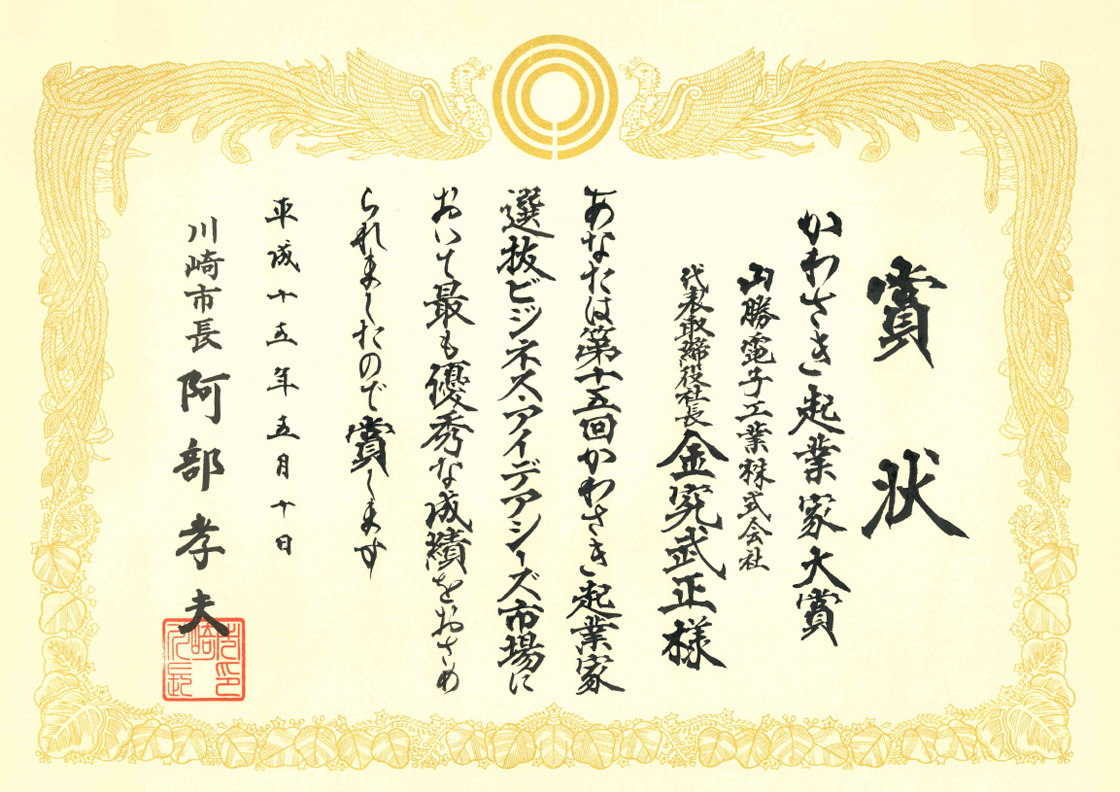 賞状
かわさき起業家大賞
山勝電子工業株式会社
代表取締役社長 金究武正様
あなたは第十五回かわさき起業家
選抜ビジネス・アイデアシーズ市場に
おいて最も優秀な成績をおさめ
られましたので賞します
平成十五年五月十日
川崎市長 阿部孝夫